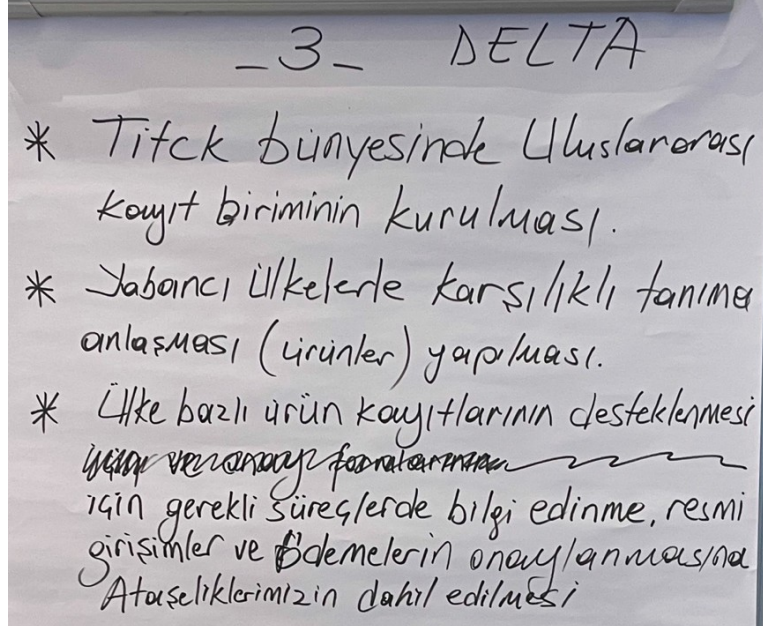 -3- DELTA
* Titck bünyesinde Uluslararası
kayıt biriminin kurulması.
* Yabancı ülkelerle karşılıklı tanıma
anlaşması (ürünler) yapılması.
* Ülke bazlı ürün kayıtlarının desteklenmesi
için gerekli süreçlerde bilgi edinme, resmi
girişimler ve ödemelerin onaylanmasına
Ataşeliklerimizin dahil edilmesi